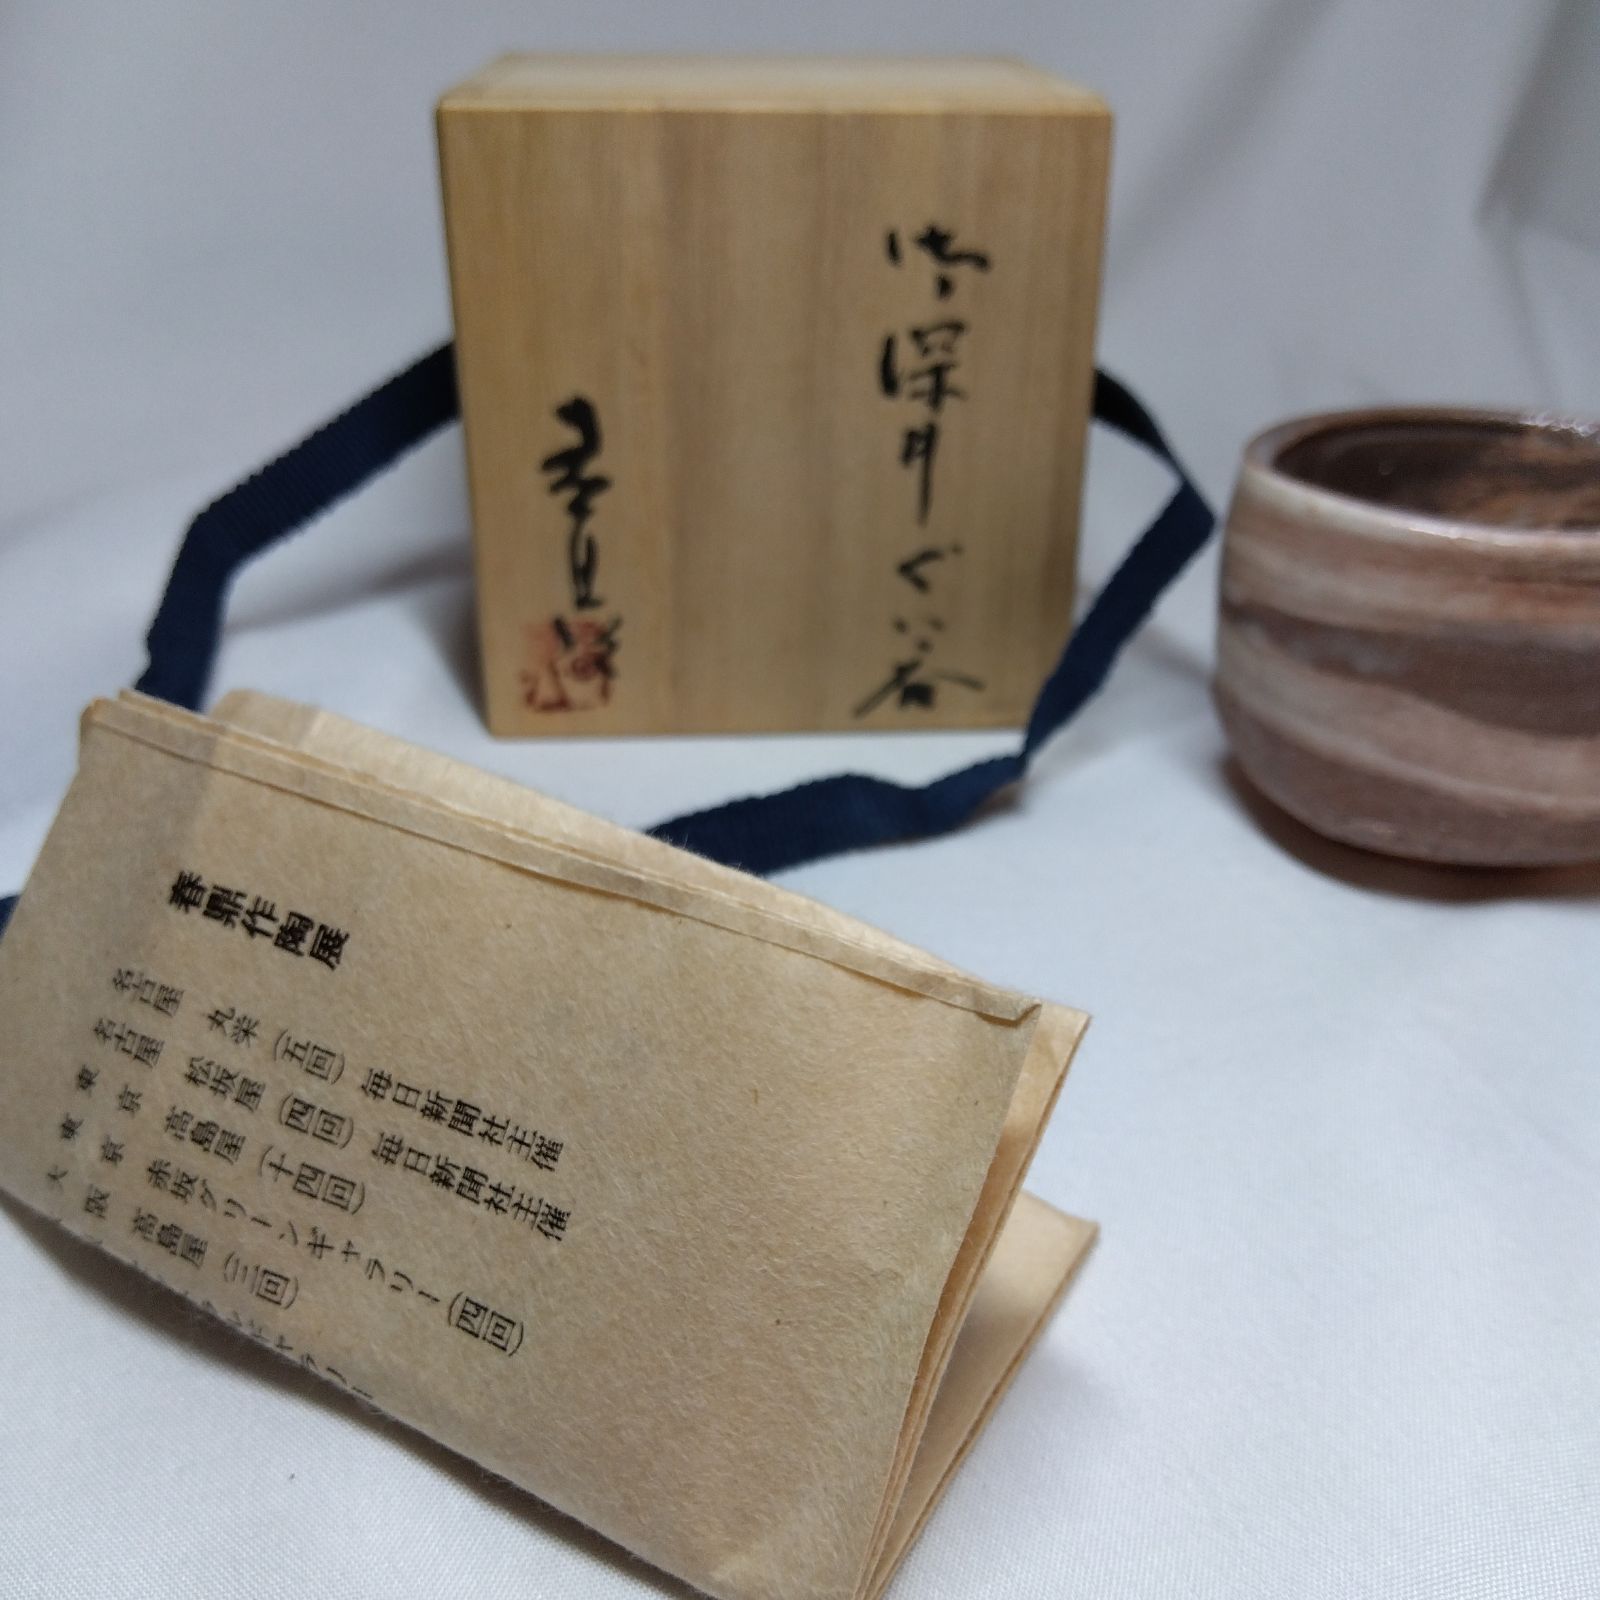 御深井ぐい呑
春鼎作陶展
名古屋 丸栄(五回) 毎日新聞社主催
名古屋 松坂屋(四回) 毎日新聞社主催
東京 高島屋(十四回)
東京 赤坂グリーンギャラリー(四回)
大阪 高島屋(三回)